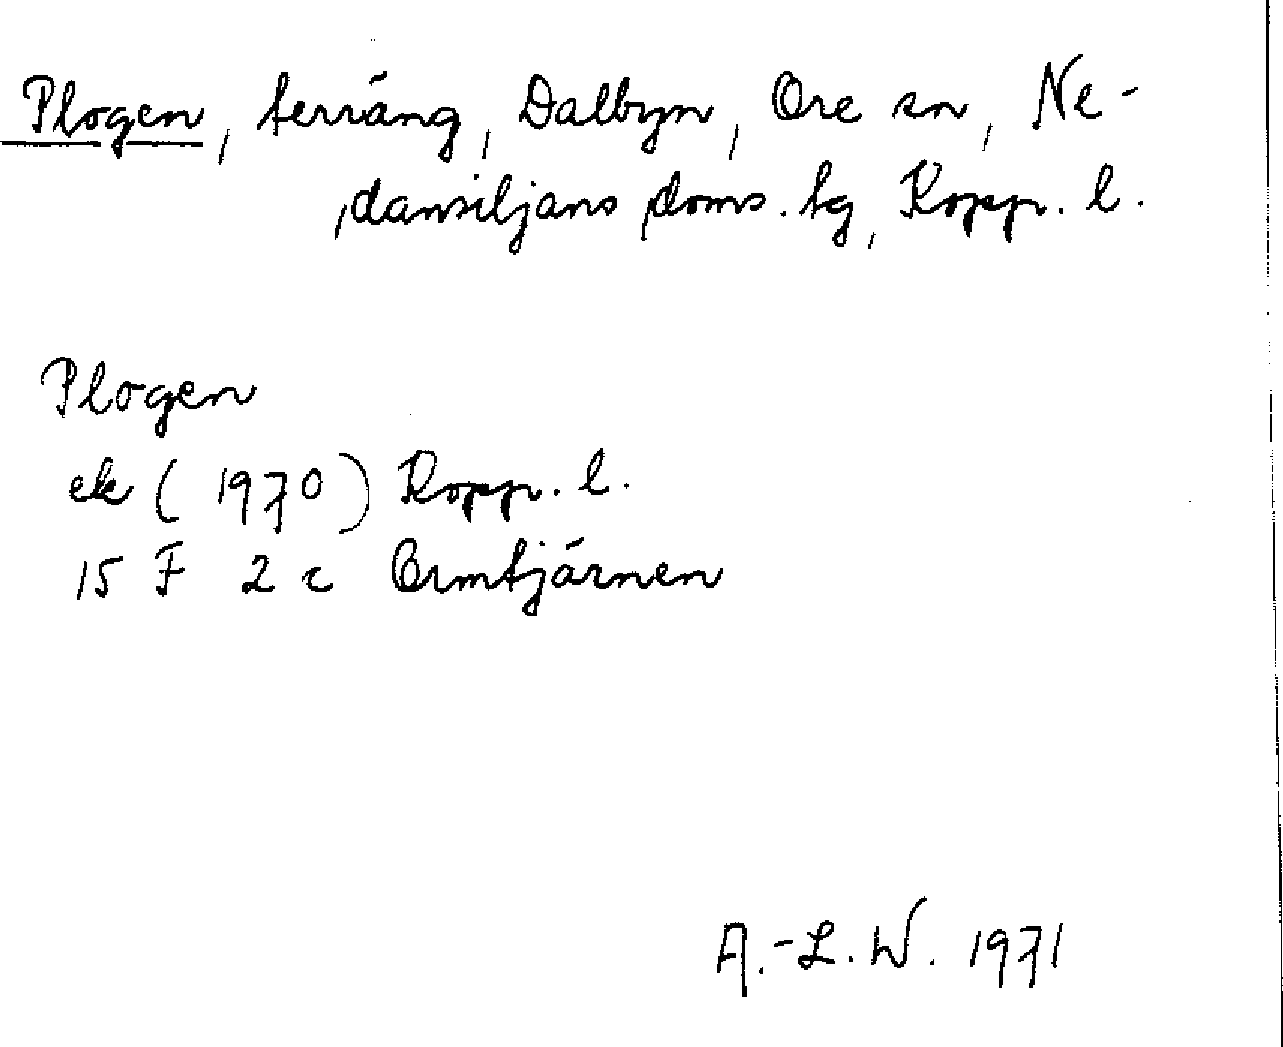 Plogen, terräng, Dalbyn, Ore sn, Ne-
dansiljans doms. tg, Kopp. l.
Plogen
ek (1970) Kopp. l.
15 F 2 c Ormtjärnen
A.-L. W. 1971